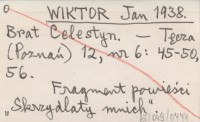 WIKTOR Jan 1938.
Brat Celestyn. — Tęcza
(Poznań) 12, nr 6: 45-50,
56.
Fragment powieści
„Skrzydlaty mnich".